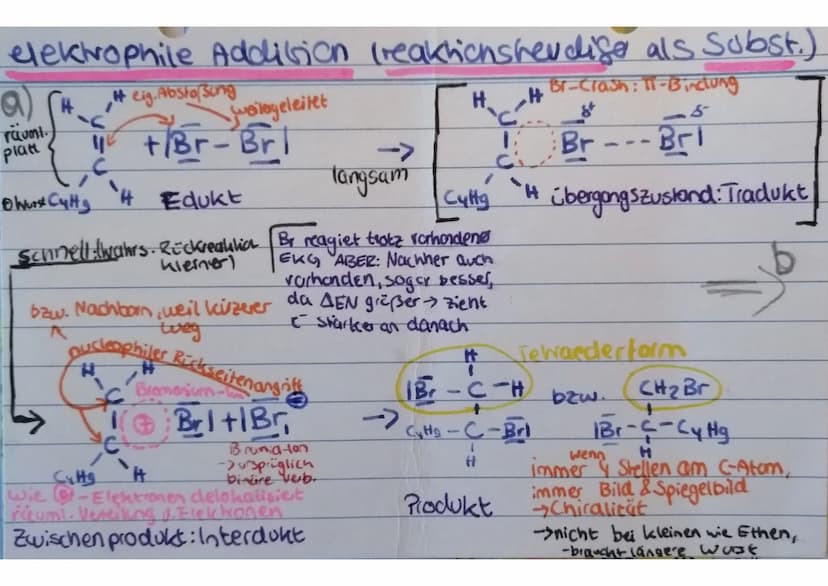 elektrophile Addition (reaktionsfreudige als Subst.)
a)
H H eig. Abstoßung
weitergeleitet
C
räuml.
platt
C
C4H9 H
+ |Br - Br|
Edukt
→
langsam
H H Br-Crash: π-Bindung
C
δ+ δ-
Br --- Br|
C
C4H9 H
Übergangszustand: Tradukt
schnell
Rückreaktion
kleiner)
Br reagiert trotz vorhandener
EKG ABER: Nachher auch
vorhanden, sogar besser,
da ΔEN größer → zieht
e- stärker an danach
b
bzw. Nachbarn, weil kürzerer
Weg
nucleophiler Rückseitenangriff
H H
C
Bromonium-Ion
+
Br| + |Br|
C
C4H9 H
Bromid-Ion
→ ursprüglich
binäre Verb.
wie - Elektronen delokalisiert
räuml. Verteilung d. Elektronen
Zwischenprodukt: Interdukt
→
Tetraederform
H
|Br - C - H
C4H9 - C - Br|
H
Produkt
bzw.
CH2Br
|Br - C - C4H9
H
wenn
immer 4 Stellen am C-Atom,
immer Bild & Spiegelbild
→ Chiralität
→ nicht bei kleinen wie Ethen,
- braucht längere Wurst